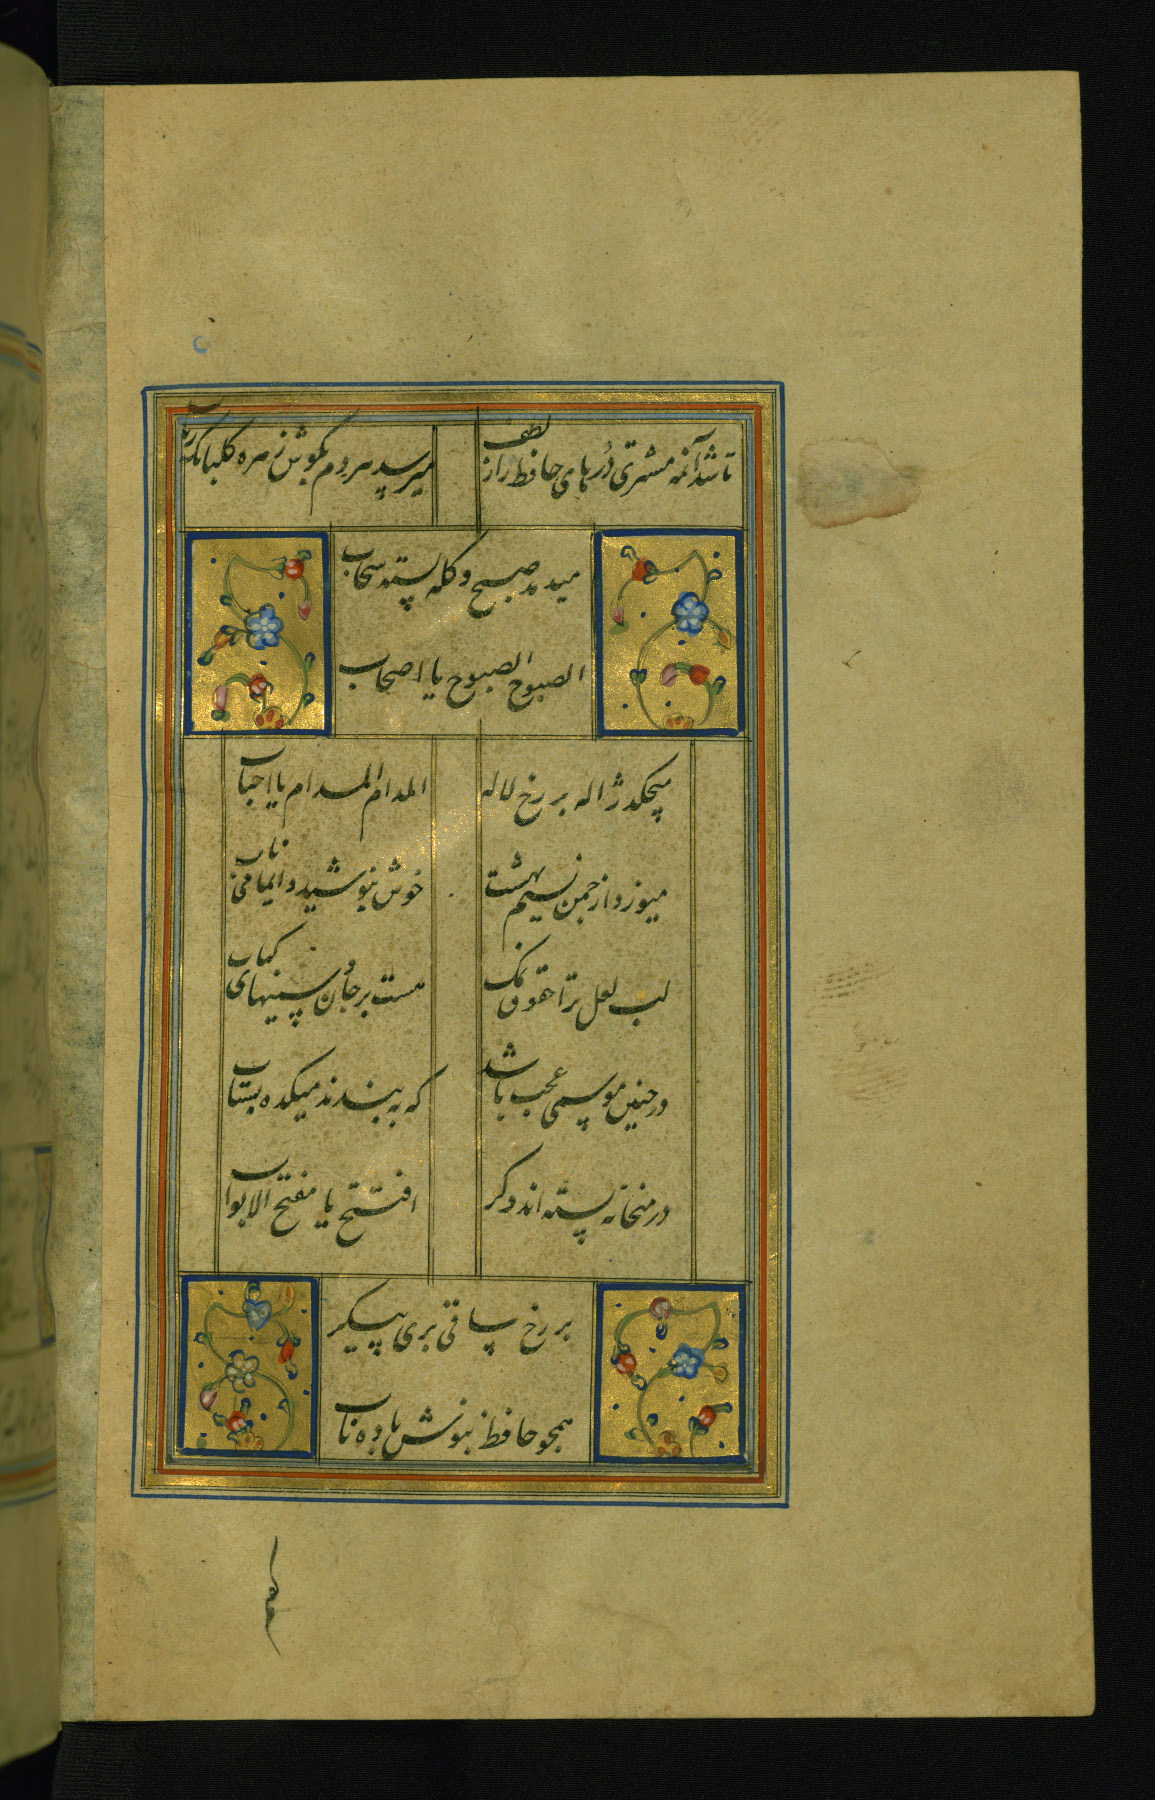 تا شد آنمه مشتری درهای حافظ را ز لطف
میرسد هر دم بگوش زهره کلبانک رباب
میدمد صبح و کله بسته سحاب
الصبوح الصبوح یا اصحاب
میچکد ژاله بر رخ لاله
المدام المدام یا احباب
میوزد از چمن نسیم بهشت
خوش بنوشید دایما می ناب
لب لعل ترا حقوق نمک
هست بر جان و سینهای کباب
در چنین موسمی عجب باشد
که به بندند میکده بشتاب
در میخانه بسته اند دکر
افتتح یا مفتح الابواب
بر رخ ساقی پری پیکر
همچو حافظ بنوش باده ناب